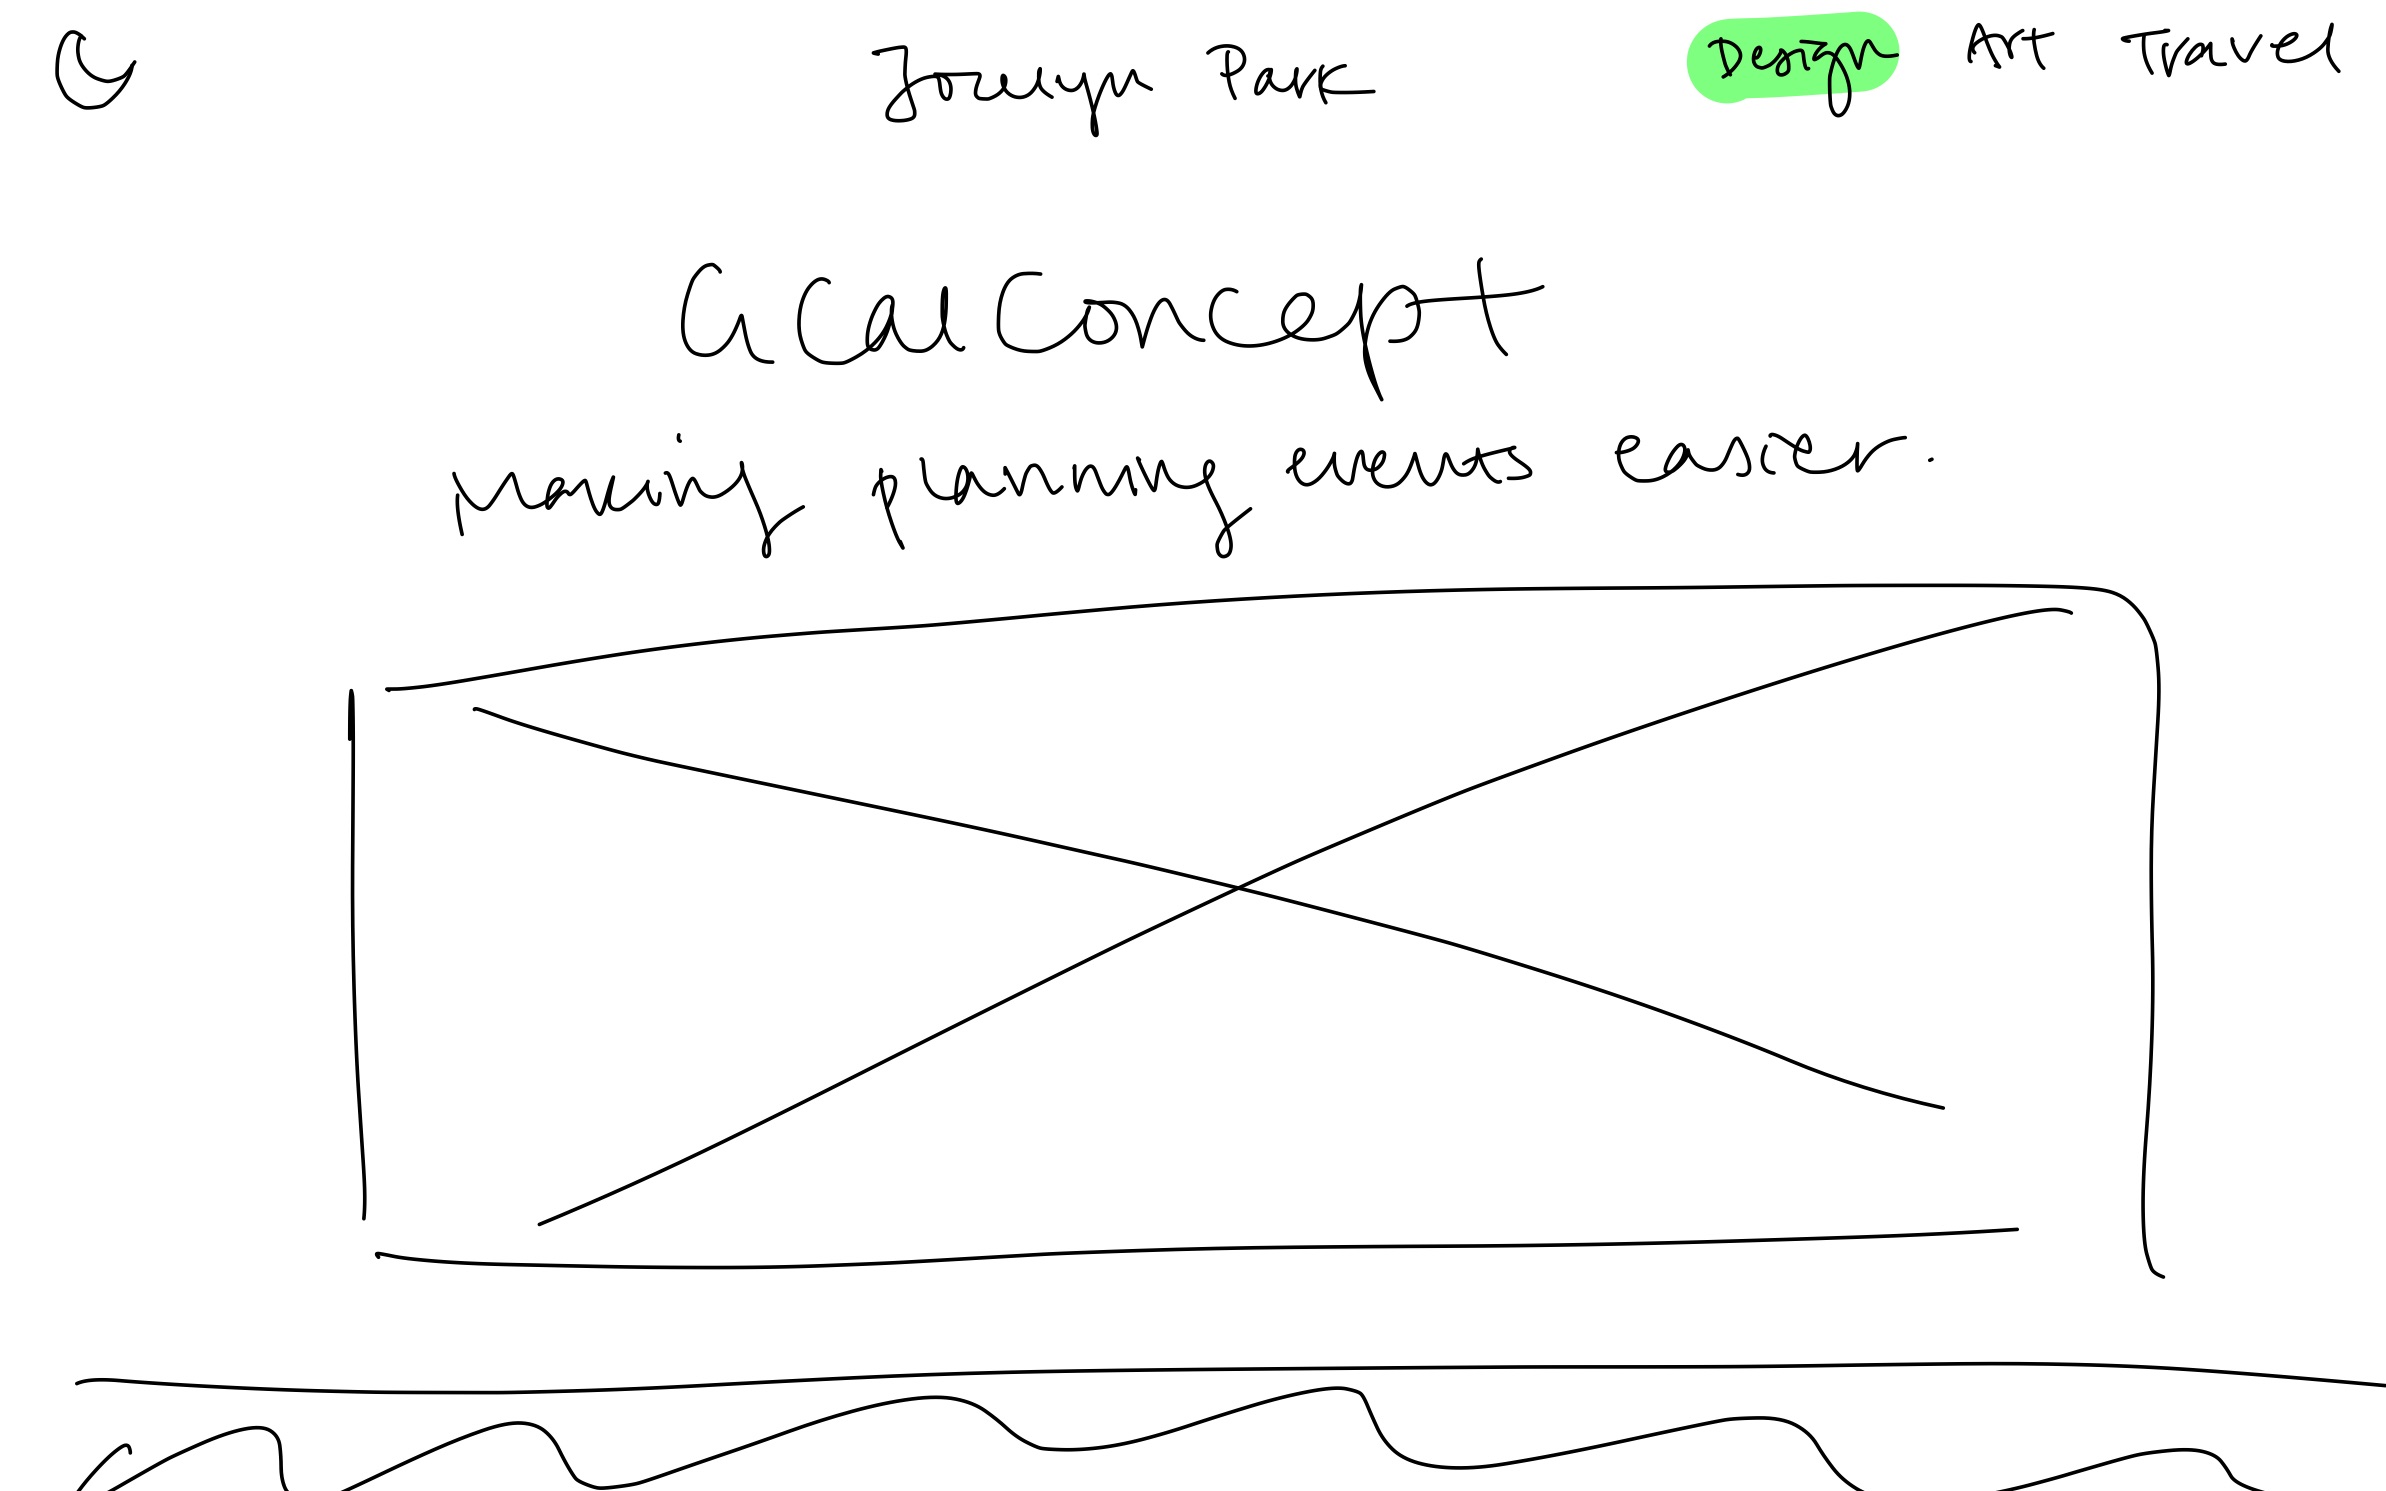 Park Design Art Travel
GCal Concept
Making planning events easier.